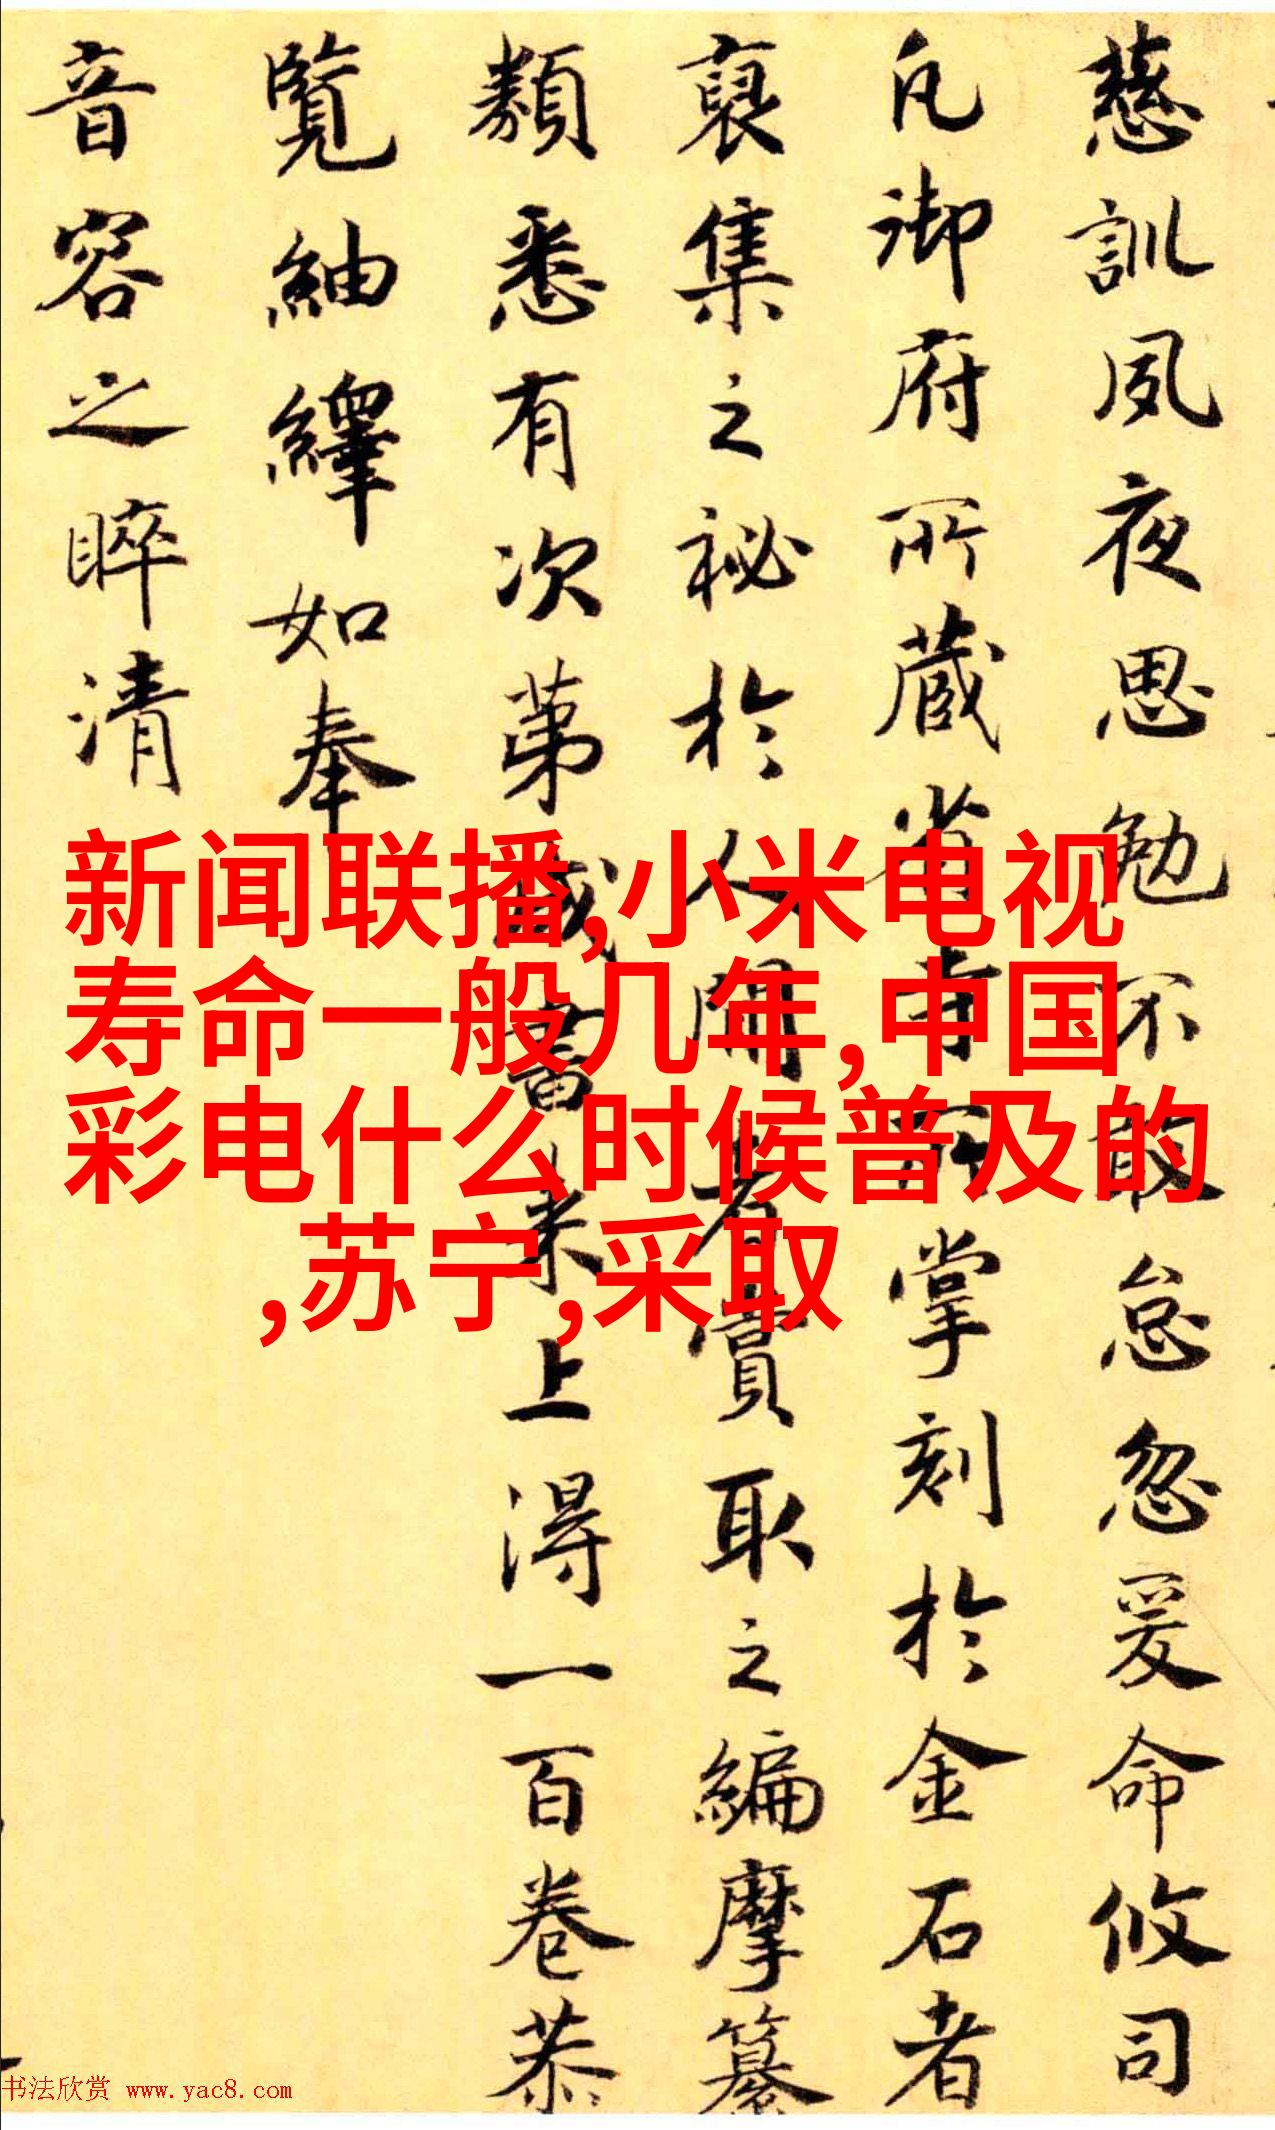 新闻联播,小米电视
寿命一般几年,中国
彩电什么时候普及的
,苏宁,采取
慈訓夙夜思勉不敢怠忽爰命攸司
凡御府所蔵省寺所掌刻於金石者
裒集之祕於人間者賞取之編摩纂
類悉有次第成書来上得一百卷恭
覽紬繹如奉
音容之睟清
书法欣赏 www.yac8.com